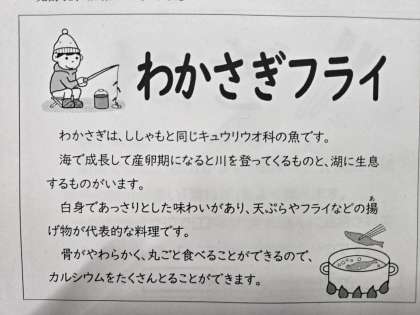 わかさぎフライ
わかさぎは、ししゃもと同じキュウリウオ科の魚です。
海で成長して産卵期になると川を登ってくるものと、湖に生息
するものがいます。
白身であっさりとした味わいがあり、天ぷらやフライなどの揚
げ物が代表的な料理です。
骨がやわらかく、丸ごと食べることができるので、
カルシウムをたくさんとることができます。